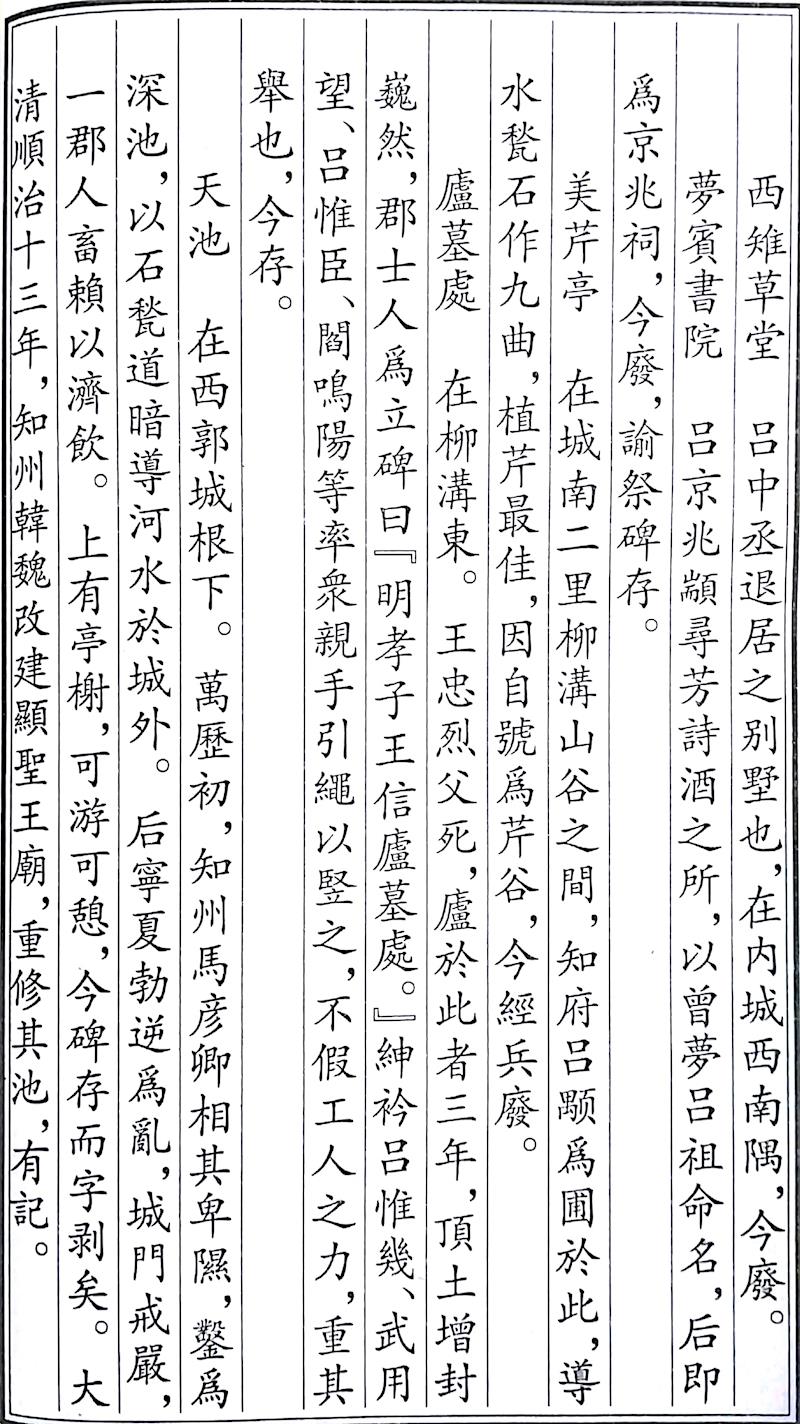 西雉草堂　呂中丞退居之别墅也，在内城西南隅，今廢。
夢賓書院　呂京兆顓尋芳詩酒之所，以曾夢呂祖命名，后即
爲京兆祠，今廢，諭祭碑存。
美芹亭　在城南二里柳溝山谷之間，知府呂顒爲圃於此，導
水甃石作九曲，植芹最佳，因自號爲芹谷，今經兵廢。
廬墓處　在柳溝東。王忠烈父死，廬於此者三年，頂土增封
巍然，郡士人爲立碑曰『明孝子王信廬墓處。』紳衿呂惟幾、武用
望、呂惟臣、閻鳴陽等率衆親手引繩以竪之，不假工人之力，重其
舉也，今存。
天池　在西郭城根下。萬歷初，知州馬彦卿相其卑隰，鑿爲
深池，以石甃道暗導河水於城外。后寧夏勃逆爲亂，城門戒嚴，
一郡人畜賴以濟飲。上有亭榭，可游可憩，今碑存而字剥矣。大
清順治十三年，知州韓魏改建顯聖王廟，重修其池，有記。